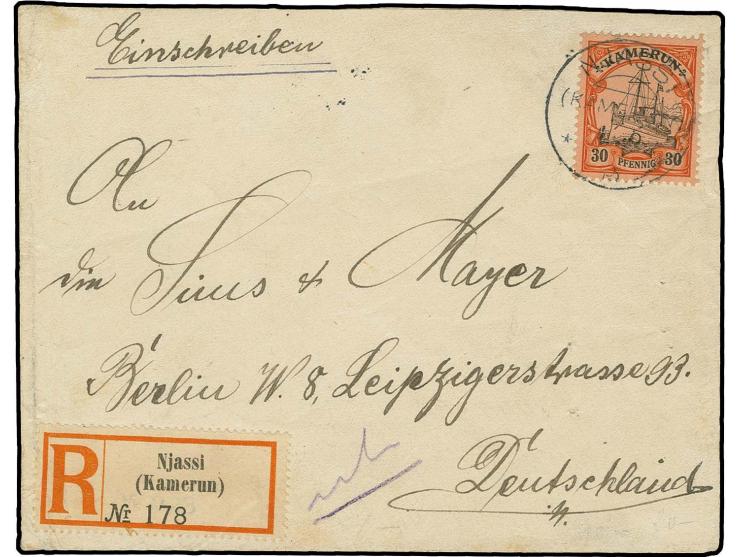 Einschreiben
KAMERUN
30 PFENNIG 30
An
die Sinus & Mayer
Berlin W. 8, Leipzigerstrasse 93.
Deutschland
R
Njassi
(Kamerun)
№ 178